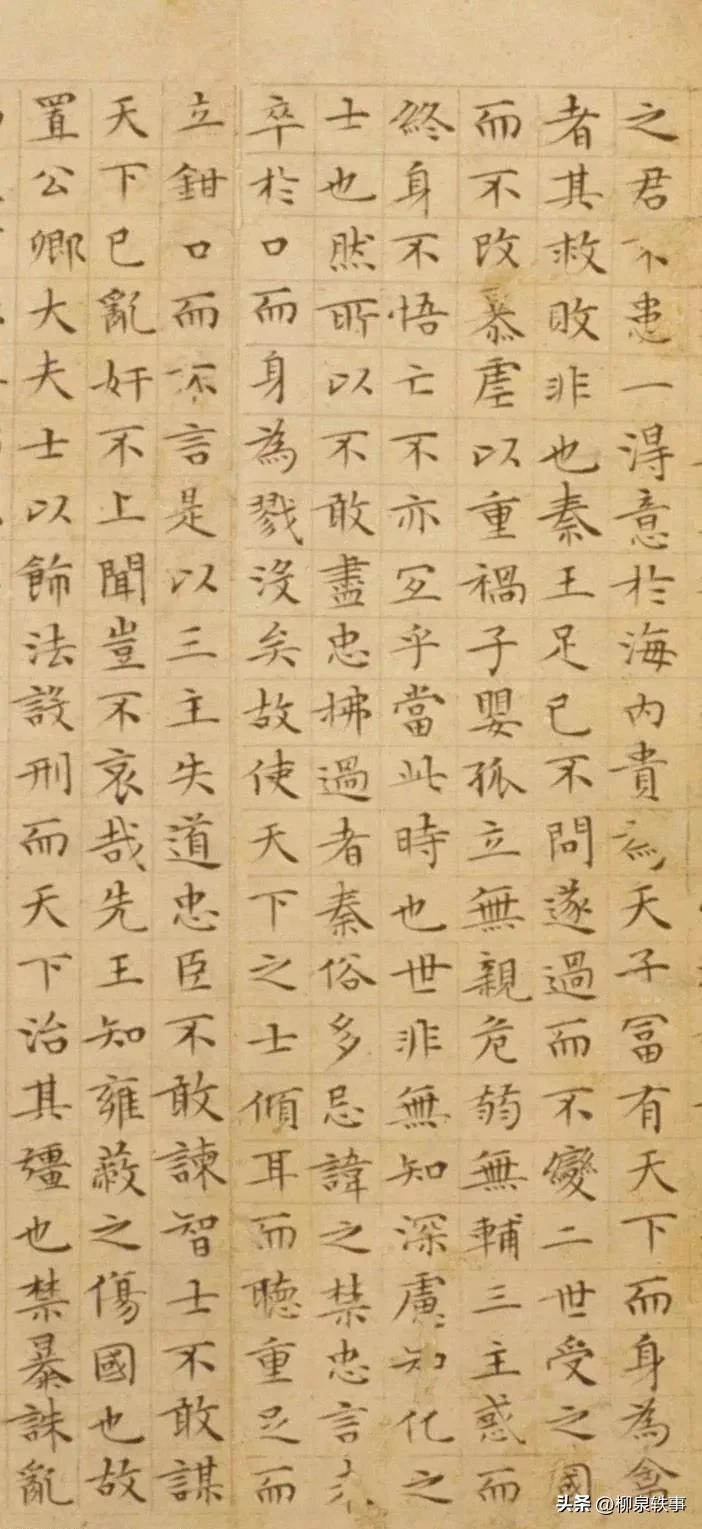 之君不患一淂意於海内貴為天子冨有天下而身為禽
者其救敗非也秦王足已不問遂過而不變二世受之因
而不改暴虐以重禍子嬰孤立無親危弱無輔三主惑而
終身不悟亡不亦冝乎當此時也世非無知深慮知化之
士也然所以不敢盡忠拂過者秦俗多忌諱之禁忠言未
卒於口而身為戮没矣故使天下之士傾耳而聽重足而
立鉗口而不言是以三主失道忠臣不敢諫智士不敢謀
天下已亂奸不上聞豈不哀哉先王知雍蔽之傷國也故
置公卿大夫士以飾法設刑而天下治其彊也禁暴誅亂
头条 @柳泉轶事